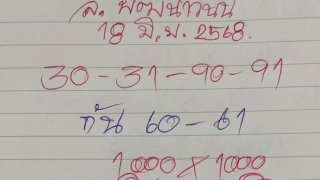 ล. พัฒนานนท์
18 มิ.ย. 2568.
30-31-90-91
กัน 60-61
1,000 x 1000